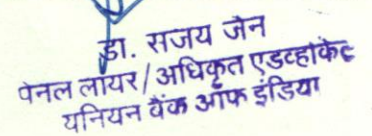 डा. सजय जैन
पेनल लॉयर/अधिकृत एडव्होकेट
यनियन बैंक ऑफ इंडिया